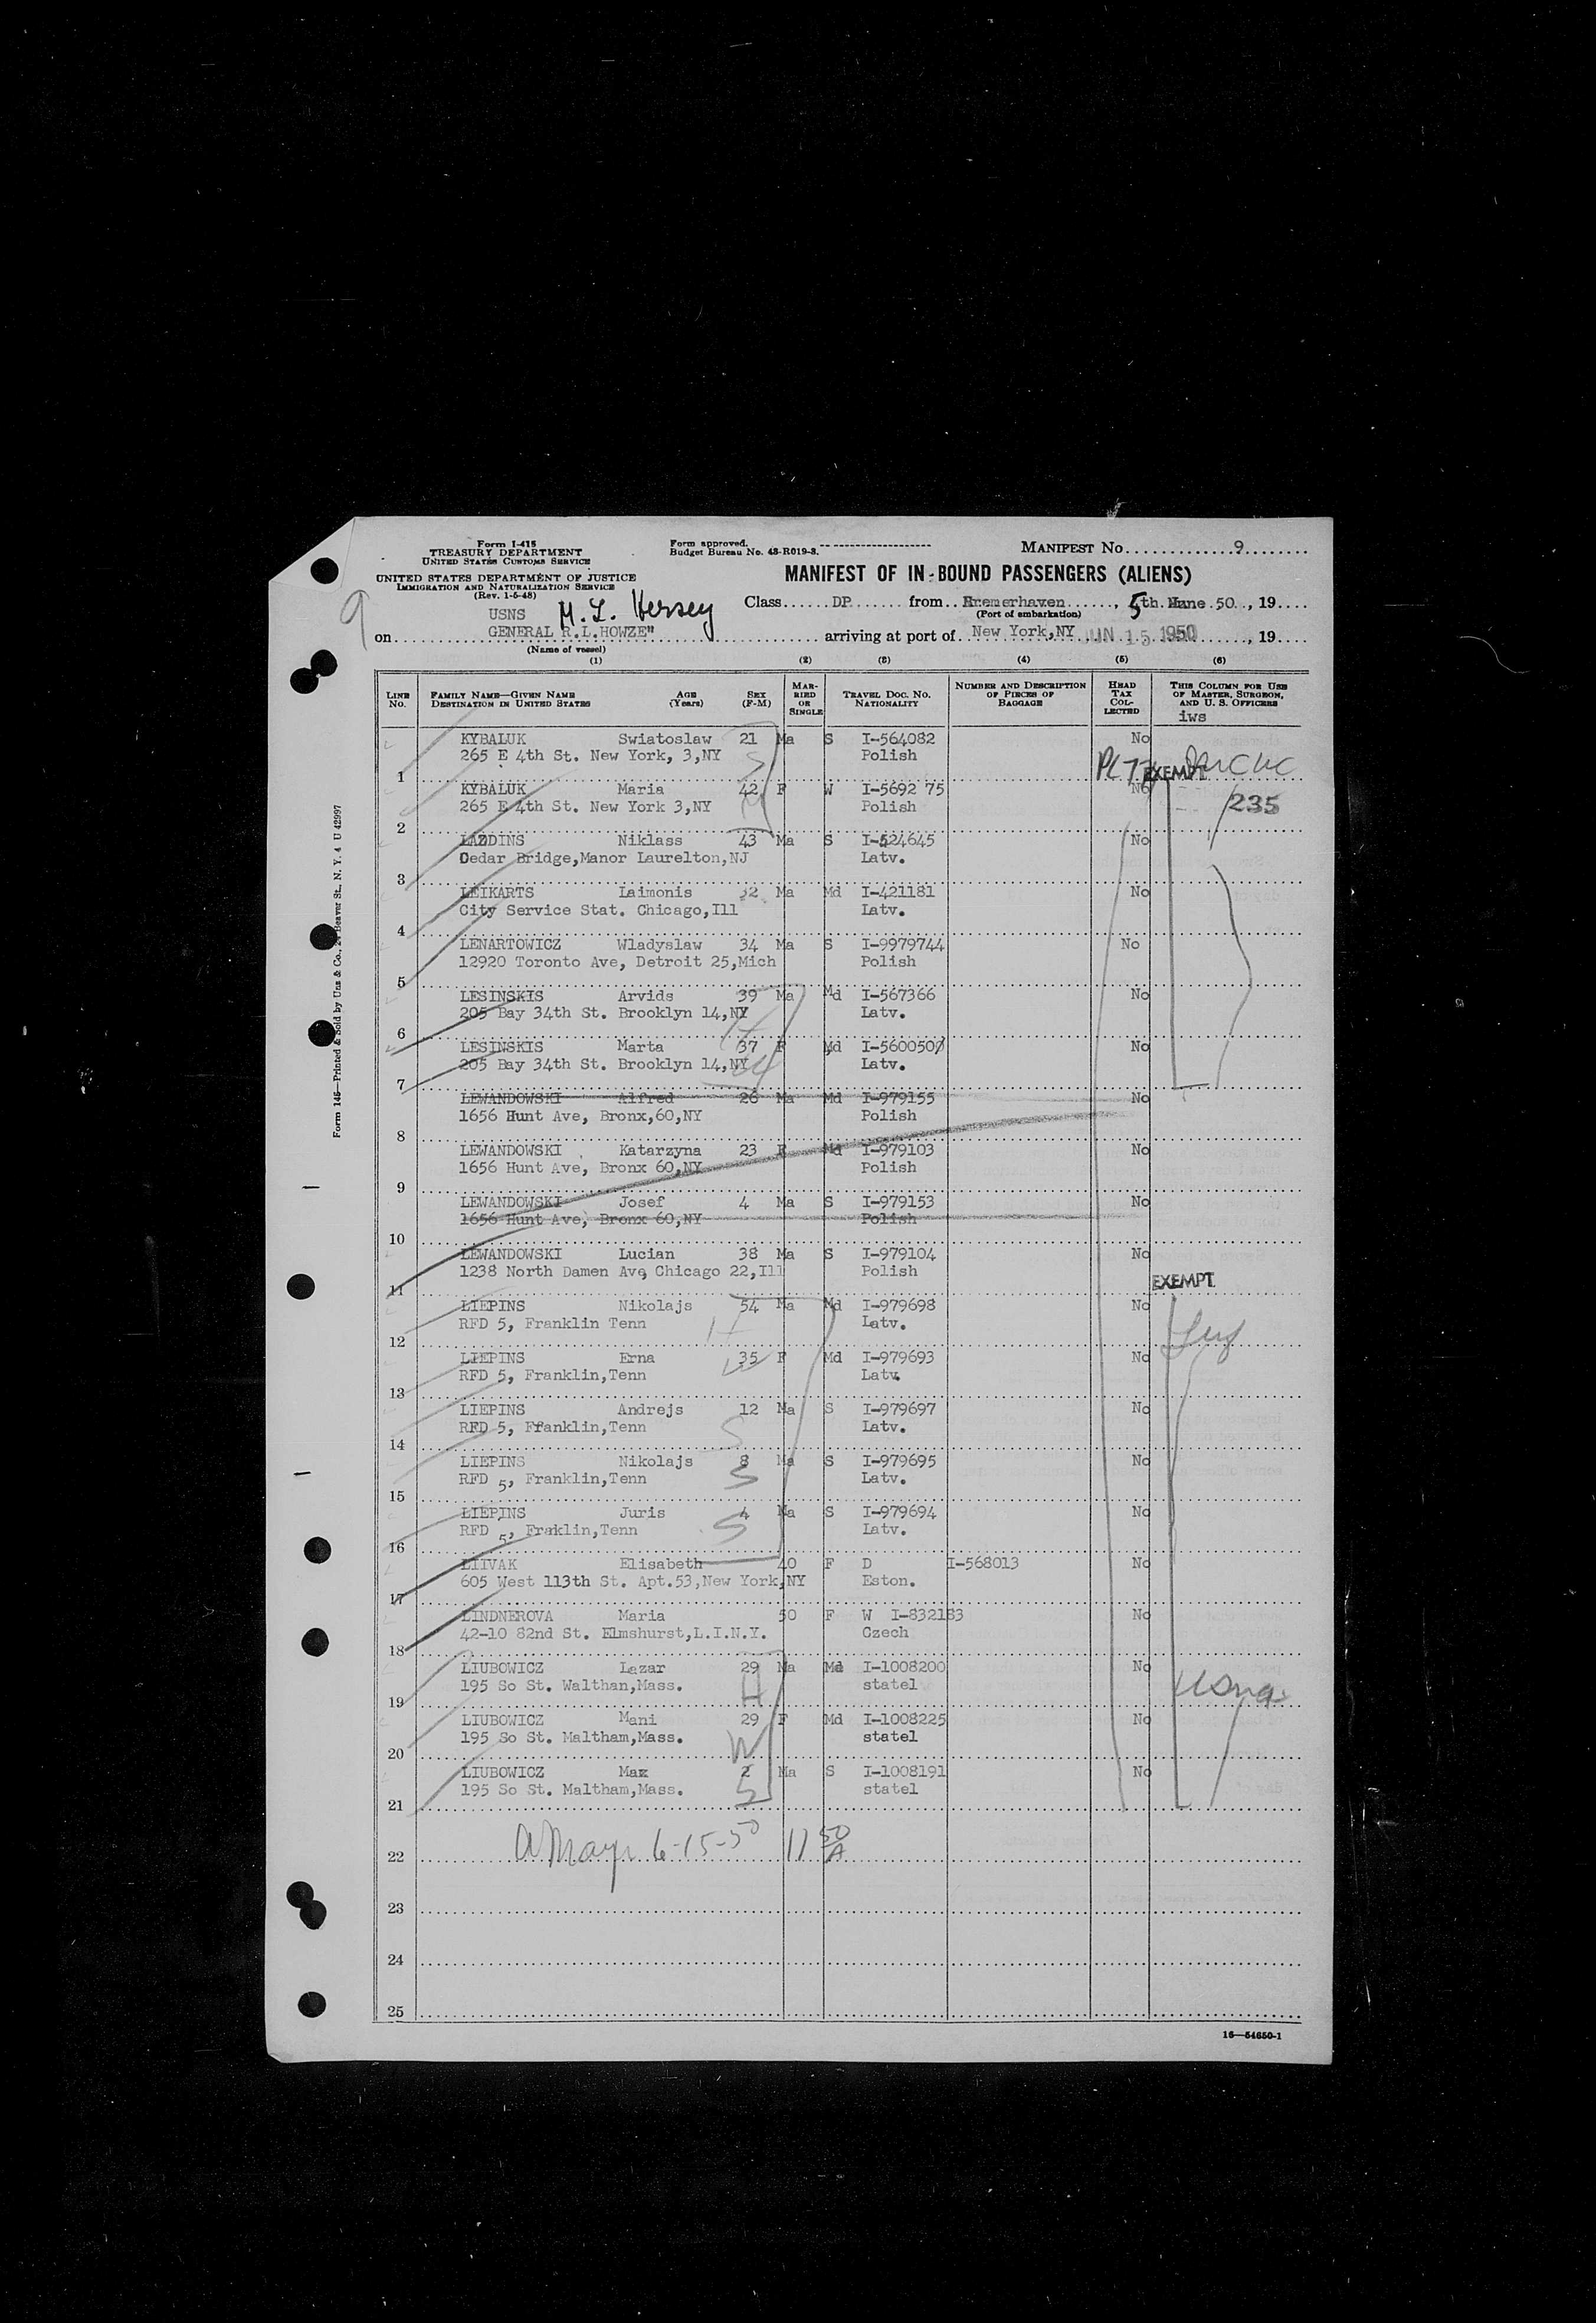 Form I-415
TREASURY DEPARTMENT
UNITED STATES CUSTOMS SERVICE
UNITED STATES DEPARTMENT OF JUSTICE
IMMIGRATION AND NATURALIZATION SERVICE
(Rev. 1-5-48)
Form approved.
Budget Bureau No. 43-R019-3.
MANIFEST No. 9
MANIFEST OF IN-BOUND PASSENGERS (ALIENS)
9
USNS M. L. Hersey
Class DP from Bremerhaven, 5th. June 50, 19
(Port of embarkation)
on GENERAL R.L.HOWZE" arriving at port of New York,NY JUN 15 1950, 19
(Name of vessel)
(1) (2) (3) (4) (5) (6)
LINE No. FAMILY NAME—GIVEN NAME DESTINATION IN UNITED STATES AGE (Years) SEX (F-M) MARRIED OR SINGLE TRAVEL DOC. NO. NATIONALITY NUMBER AND DESCRIPTION OF PIECES OF BAGGAGE HEAD TAX COLLECTED THIS COLUMN FOR USE OF MASTER, SURGEON, AND U. S. OFFICERS
iws
KYBALUK Swiatoslaw 21 Ma S I-564082 No
265 E 4th St. New York, 3,NY Polish
1 EXEMPT
KYBALUK Maria 42 F W I-5692 75 No
265 E 4th St. New York 3,NY Polish 235
2
LAZDINS Niklass 43 Ma S I-524645 No
Cedar Bridge,Manor Laurelton,NJ Latv.
3
LEIKARTS Laimonis 32 Ma Md I-421181 No
City Service Stat. Chicago,Ill Latv.
4
LENARTOWICZ Wladyslaw 34 Ma S I-9979744 No
12920 Toronto Ave, Detroit 25,Mich Polish
5
LESINSKIS Arvids 39 Ma Md I-567366 No
205 Bay 34th St. Brooklyn 14,NY Latv.
6 H
LESINSKIS Marta 37 F Md I-560050 No
205 Bay 34th St. Brooklyn 14,NY Latv.
7 W
LEWANDOWSKI Alfred 26 Ma Md I-979155 No
1656 Hunt Ave, Bronx,60,NY Polish
8
LEWANDOWSKI Katarzyna 23 F Md I-979103 No
1656 Hunt Ave, Bronx 60,NY Polish
9
LEWANDOWSKI Josef 4 Ma S I-979153 No
1656 Hunt Ave, Bronx 60,NY Polish
10
LEWANDOWSKI Lucian 38 Ma S I-979104 No
1238 North Damen Ave Chicago 22,Ill Polish
11 EXEMPT
LIEPINS Nikolajs 54 Ma Md I-979698 No
RFD 5, Franklin Tenn Latv.
12 H
LIEPINS Erna 35 F Md I-979693 No
RFD 5, Franklin,Tenn Latv.
13 W
LIEPINS Andrejs 12 Ma S I-979697 No
RFD 5, Franklin,Tenn Latv.
14 S
LIEPINS Nikolajs 8 Ma S I-979695 No
RFD 5, Franklin,Tenn Latv.
15 S
LIEPINS Juris 4 Ma S I-979694 No
RFD 5, Fraklin,Tenn Latv.
16 S
LIIVAK Elisabeth 40 F D I-568013 No
605 West 113th St. Apt.53,New York,NY Eston.
17
LINDNEROVA Maria 50 F W I-832183 No
42-10 82nd St. Elmshurst,L.I.N.Y. Czech
18
LIUBOWICZ Lazar 29 Ma Md I-1008200 No
195 So St. Walthan,Mass. statel
19 H
LIUBOWICZ Mani 29 F Md I-1008225 No
195 So St. Maltham,Mass. statel
20 W
LIUBOWICZ Max 2 Ma S I-1008191 No
195 So St. Maltham,Mass. statel
21 S
22 6-15-50 11 50 A
23
24
25
16—54650-1
Form 145—Printed & Sold by Unz & Co., 24 Beaver St., N. Y. 4 U 42997